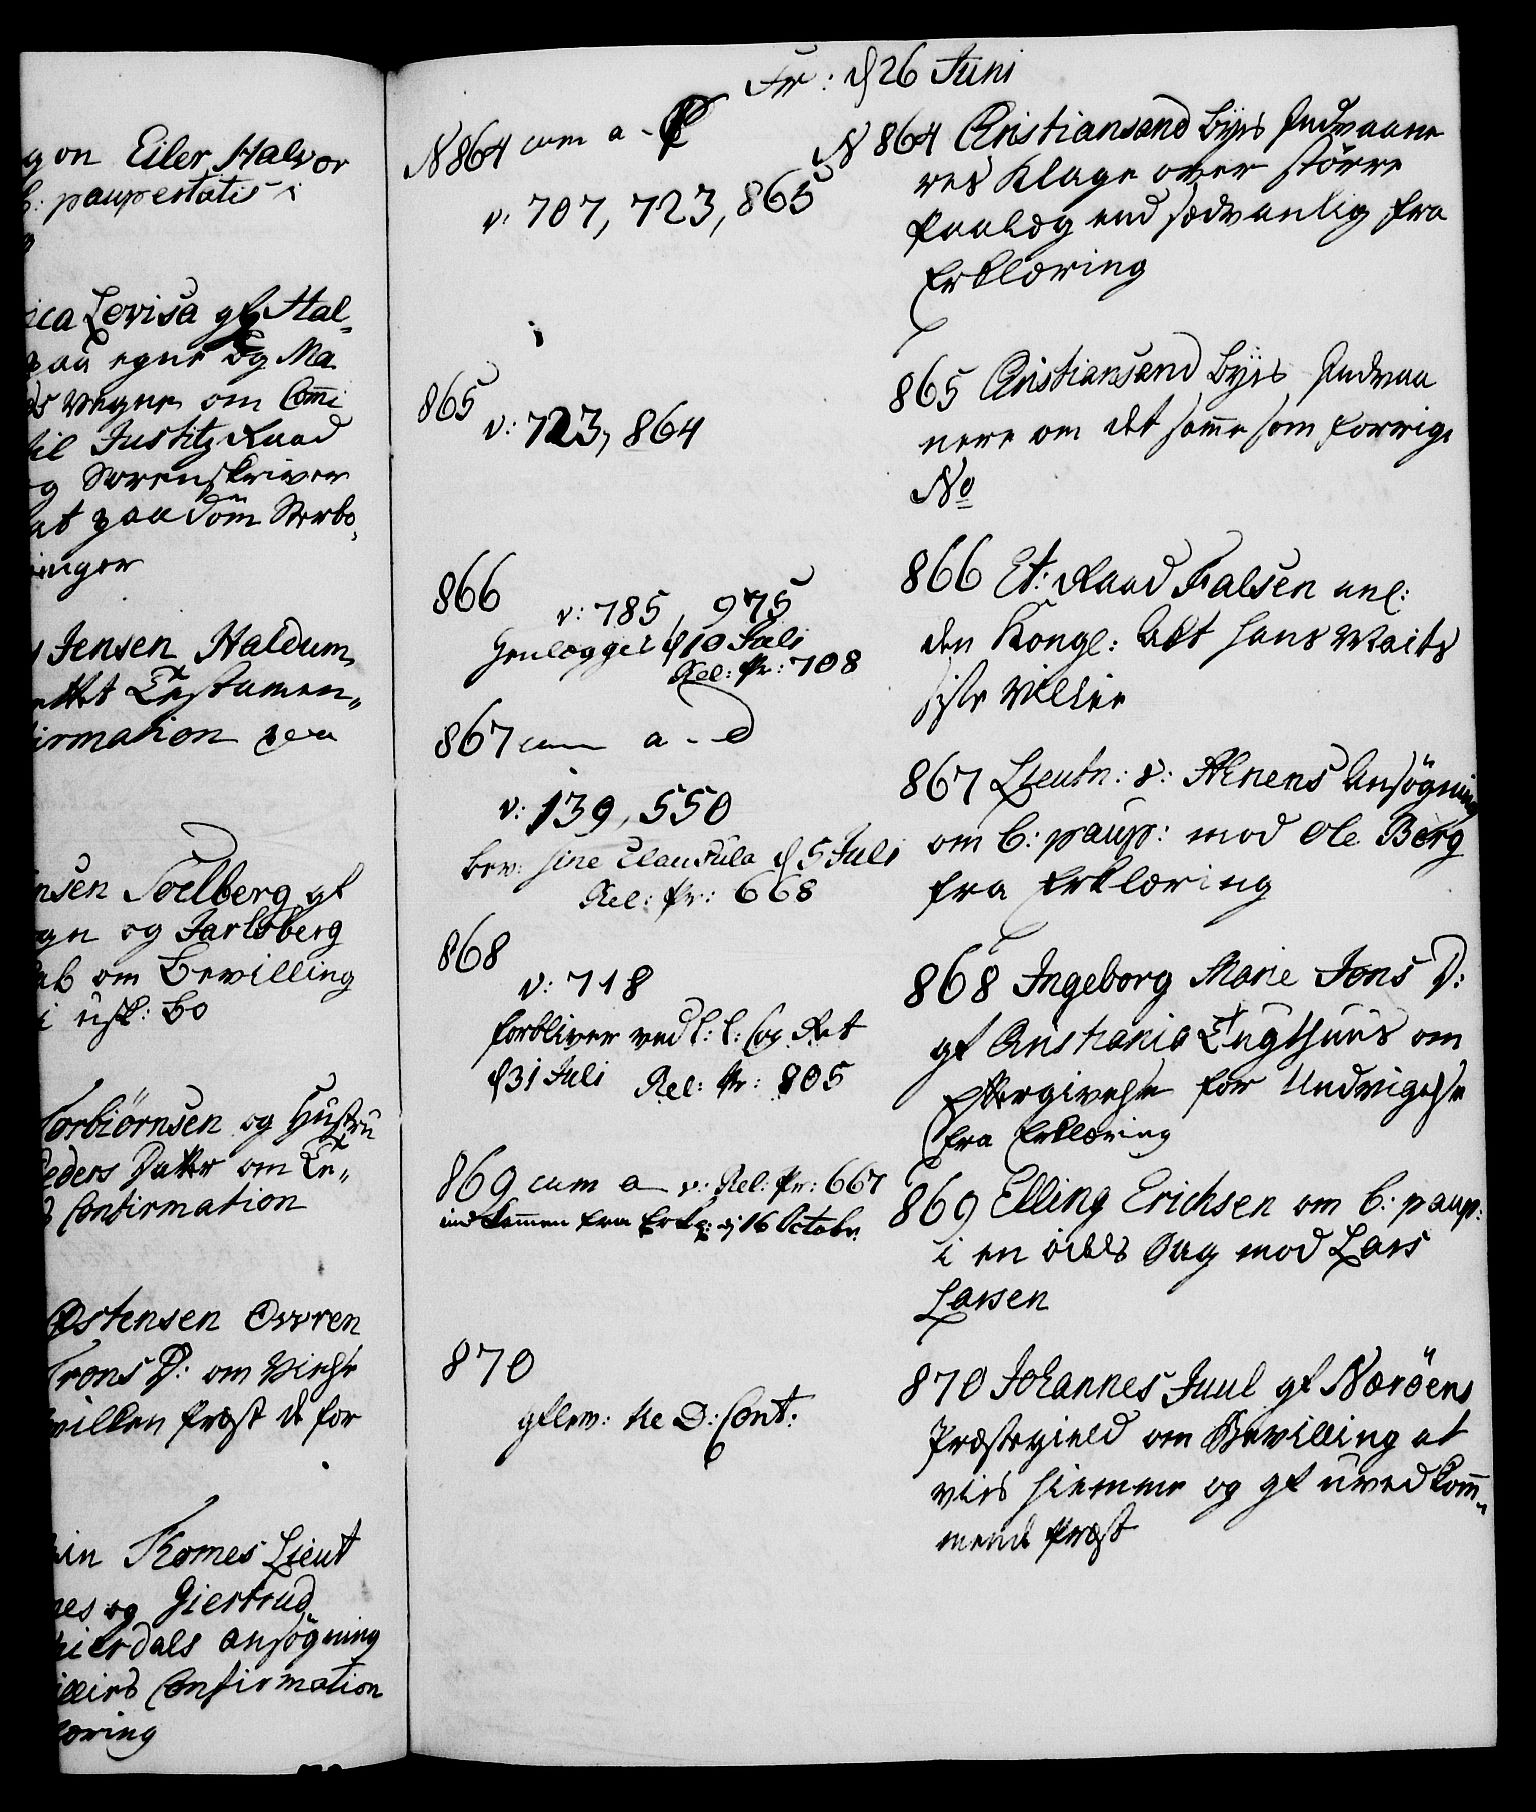 gon Eiler Halvor
b: paupertatis i
ica Lovisa gf Hal-
paa egne og Ma
ds vegne om Commi
til Justitz Raad
og Sorenskriver
at paadöm Sterbo,
ninger
s Jensen Haldum
rettet Testamen„
firmation paa
nsen Soelberg gf
gn og Jarlsberg
kab om Bevilling
i usk: bo
Torbiörnsen og Hustru
Peders Datter om Te„
s Confirmation
Ostensen Ovvren
Trons D: om Vielse
hvilken Præst de for
in Thomes Lieut
nes og Giertrud
hierdals ansögning
illies Confirmation
læring
Fr: d 26 Juni
N 864 cum a - f
v: 707, 723, 865
N 864 Christiansand byes Indvaane
res Klage over större
paalæg end sædvanlig fra
Erklæring
865 v: 723, 864
865 Christiansand byes Indvaa
nere om det samme som forrige
No
866 v: 785, 975
henlægges d 10 Juli
Rel: Pr: 708
866 Et: Raad Falsen anl:
den Kongl: Act hans Maits
sidste Villie
867 cum a - d
v: 139, 550
bev: sine Clausula d 5 Juli
Rel: Pr: 668
867 Lieutn: v: Ahnens Ansögning
om b: paup: mod Ole Berg
fra Erklæring
868
v: 718
forbliver ved l: l: og Ret
d 31 Juli Rel: Pr: 805
868 Ingeborg Marie Jons D:
gf Christiania Tugthuus om
Eftergivelse for Undvigelse
fra Erklæring
869 cum a v: Rel: Pr: 667
indkommen fra Erkl: d 16 Octobr
869 Elling Erichsen om b: paup:
i en odels Sag mod Lars
Larsen
870
gflev: He D: Cont:
870 Johannes Juul gf Næröens
Præstegield om Bevilling at
vies hiemme og gf uvedkom„
mende Præst